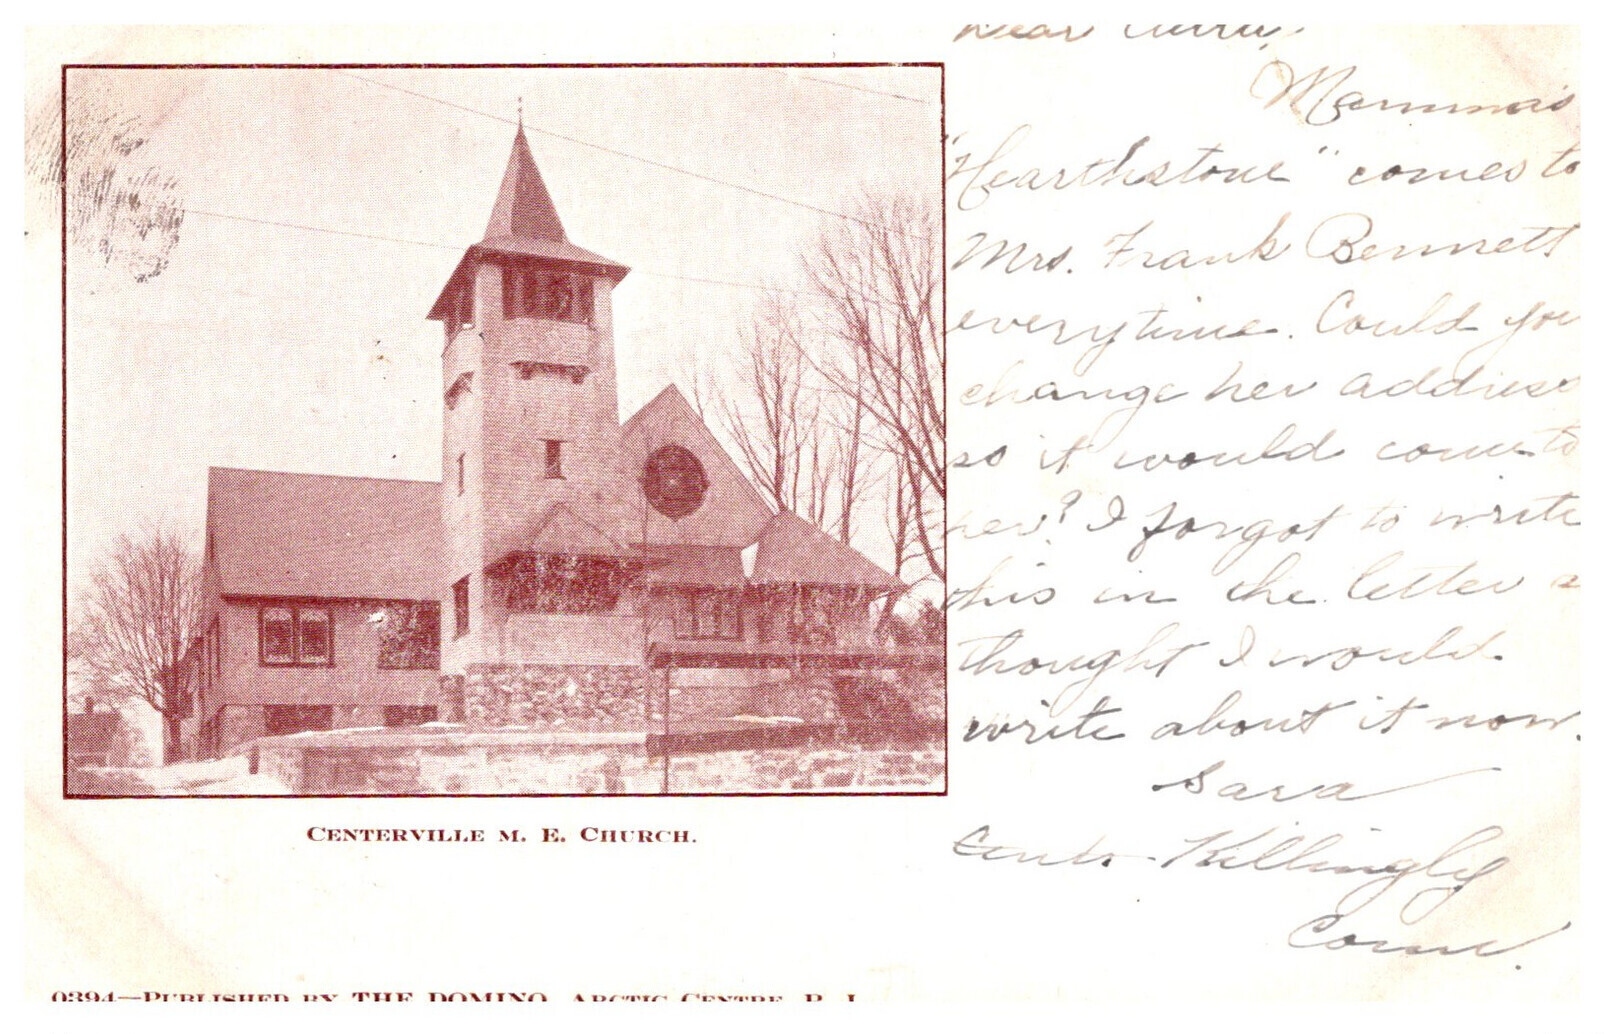 CENTERVILLE M. E. CHURCH.
0394—PUBLISHED BY THE DOMINO, ARCTIC CENTRE, R. I.
Dear
Mamma's
"Hearthstone" comes to
Mrs. Frank Bennett
everytime. Could you
change her address
so it would come to
her? I forgot to write
this in the letter &
thought I would
write about it now.
Sara
Killingly
Conn.